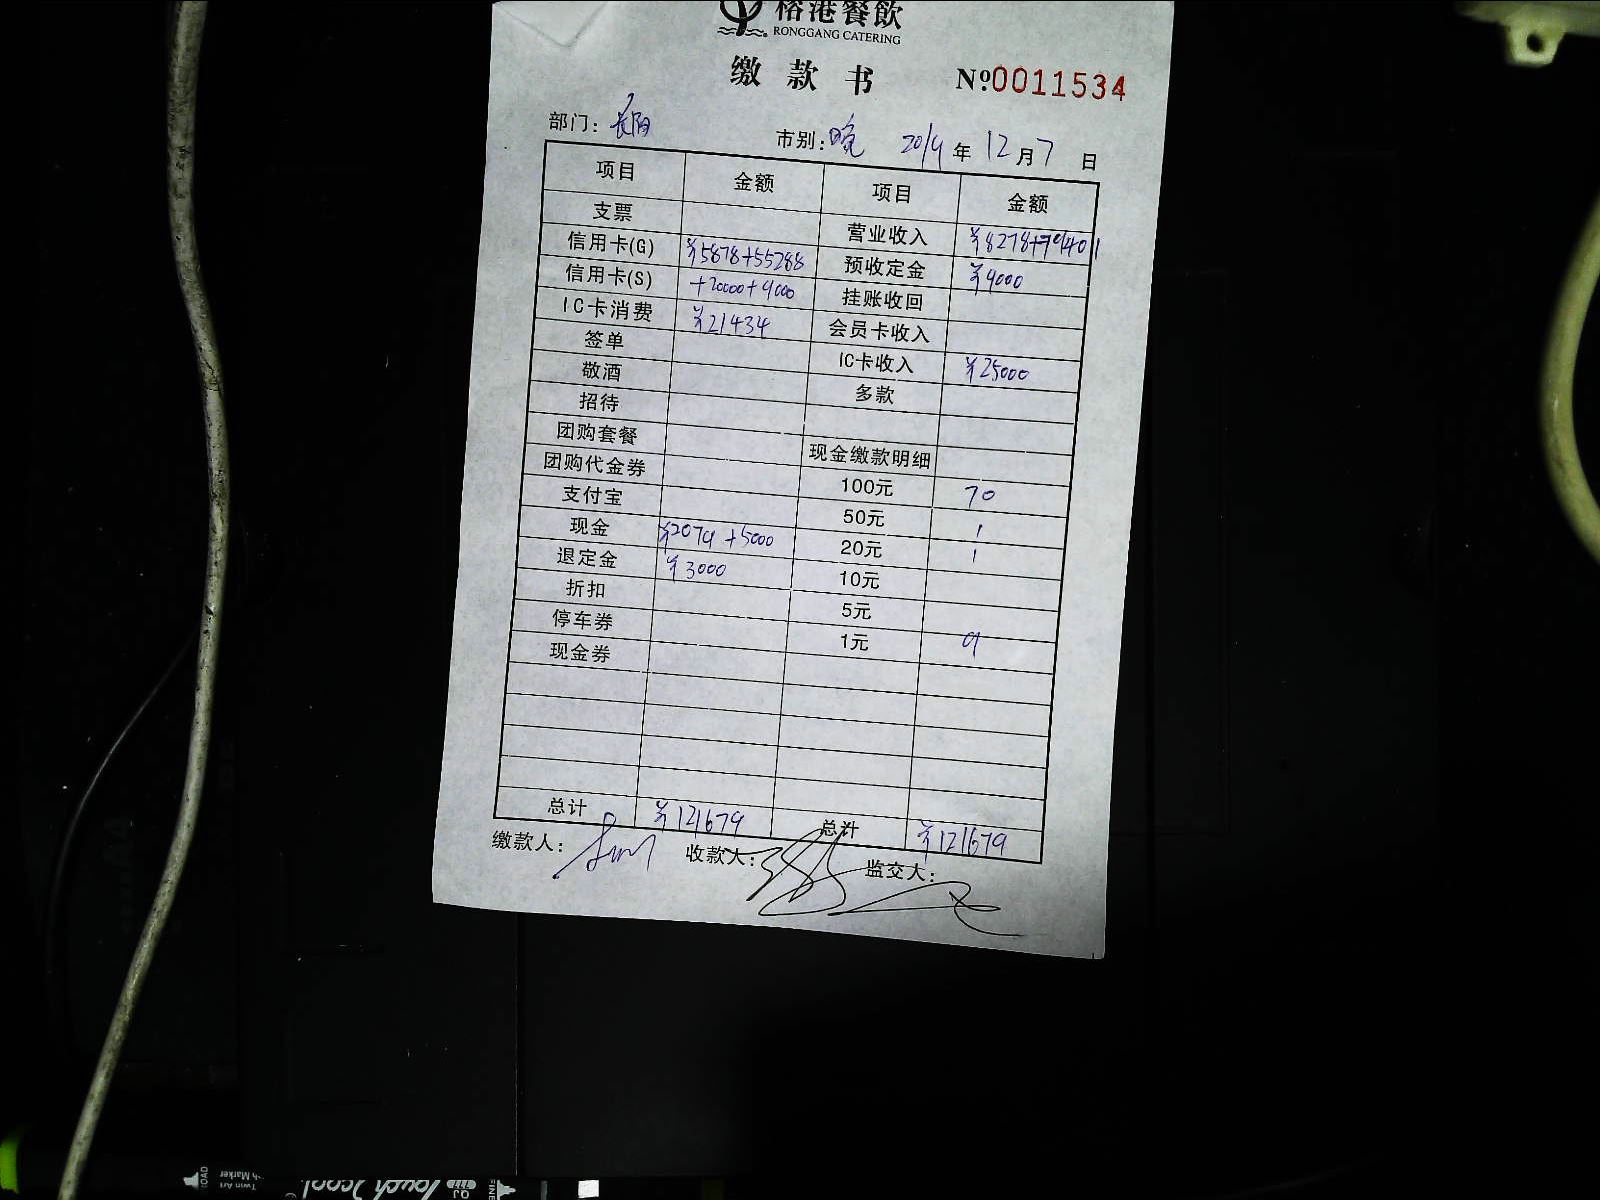 榕港餐飲
RONGGANG CATERING
缴款书 №0011534
部门：长阳 市别：晚 2019年12月7日
项目 金额 项目 金额
支票 营业收入 ¥8278+79401
信用卡(G) ¥5878+55288 预收定金 ¥9000
信用卡(S) +20000+9000 挂账收回
IC卡消费 ¥21434 会员卡收入
签单 IC卡收入 ¥25000
敬酒 多款
招待
团购套餐 现金缴款明细
团购代金券 100元 70
支付宝 50元 1
现金 ¥2079+5000 20元 1
退定金 ¥3000 10元
折扣 5元
停车券 1元 9
现金券
总计 ¥121679 总计 ¥121679
缴款人： 收款人： 监交人：